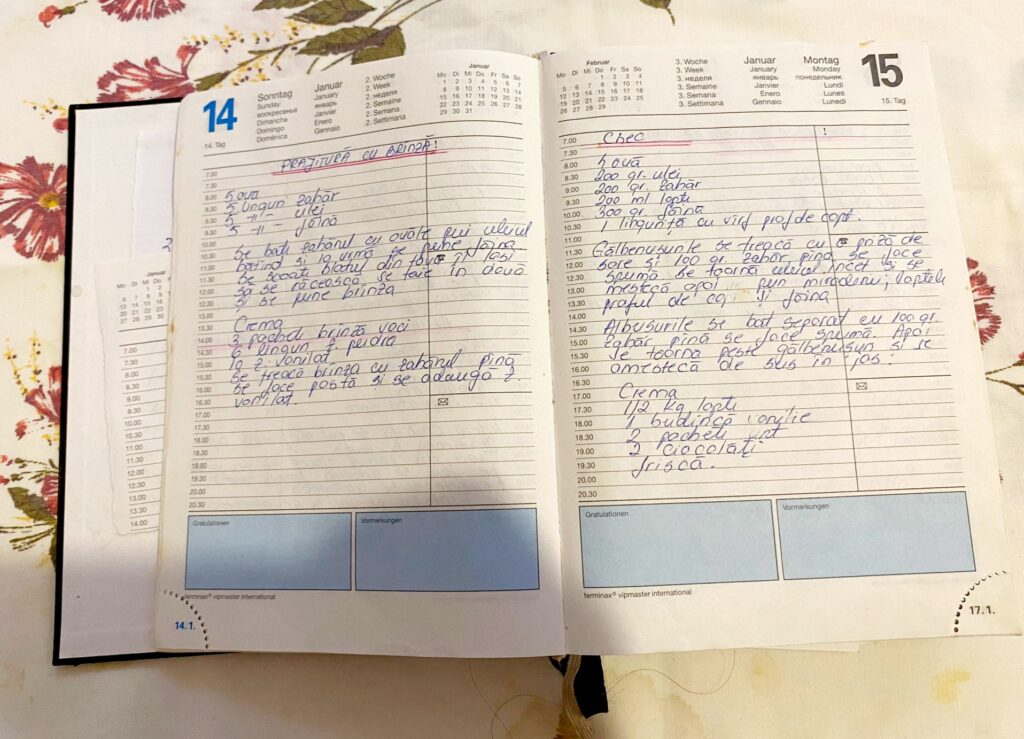 14
14. Tag
Sonntag
Sunday
воскресенье
Dimanche
Domingo
Doménica
Januar
January
январь
Janvier
Enero
Gennaio
2. Woche
2. Week
2. неделя
2. Semaine
2. Semana
2. Settimana
Januar
Mo Di Mi Do Fr Sa So
1 2 3 4 5 6 7
8 9 10 11 12 13 14
15 16 17 18 19 20 21
22 23 24 25 26 27 28
29 30 31
PRAJITURĂ CU BRINZĂ!
5 ouă
5 linguri zahăr
5 -11- ulei
5 -11- făină
Se bate zahărul cu ouăle pui uleiul
batind și la urmă se pune făina
Se scoate blatul din tavă și lași
să se răcească. Se taie în două
și se pune brinza
Crema
3 pacheti brinză vaci
6 linguri z. pudra
1 z. vanilat
Se freacă brinza cu zahărul pină
se face pastă și se adaugă z.
vanilat.
7.00
7.30
8.00
8.30
9.00
9.30
10.00
10.30
11.00
11.30
12.00
12.30
13.00
13.30
14.00
14.30
15.00
15.30
16.00
16.30
17.00
17.30
18.00
18.30
19.00
19.30
20.00
20.30
Gratulationen
Vormerkungen
terminax® vipmaster international
14.1.
Februar
Mo Di Mi Do Fr Sa So
1 2 3 4
5 6 7 8 9 10 11
12 13 14 15 16 17 18
19 20 21 22 23 24 25
26 27 28 29
3. Woche
3. Week
3. неделя
3. Semaine
3. Semana
3. Settimana
Januar
January
январь
Janvier
Enero
Gennaio
Montag
Monday
понедельник
Lundi
Lunes
Lunedi
15
15. Tag
Chec
!
5 ouă
200 gr. ulei
200 gr. zahăr
200 ml lapte
300 gr. făină
1 linguriță cu vîrf praf de copt.
Gălbenușurile se freacă cu priză de
sare și 100 gr. zahăr pină se face
spumă se toarnă uleiul încet și se
mestecă apoi pun mirodenii, laptele
praful de co și făina
Albușurile se bat separat cu 100 gr.
zahăr pină se face spumă. Apoi
se toarna peste gălbenușuri și se
amestecă de sus în jos.
Crema
1/2 kg lapte
1 budincă vanilie
2 pacheti unt
2 ciocolăți
frișcă.
7.00
7.30
8.00
8.30
9.00
9.30
10.00
10.30
11.00
11.30
12.00
12.30
13.00
13.30
14.00
14.30
15.00
15.30
16.00
16.30
17.00
17.30
18.00
18.30
19.00
19.30
20.00
20.30
Gratulationen
Vormerkungen
terminax® vipmaster international
17.1.